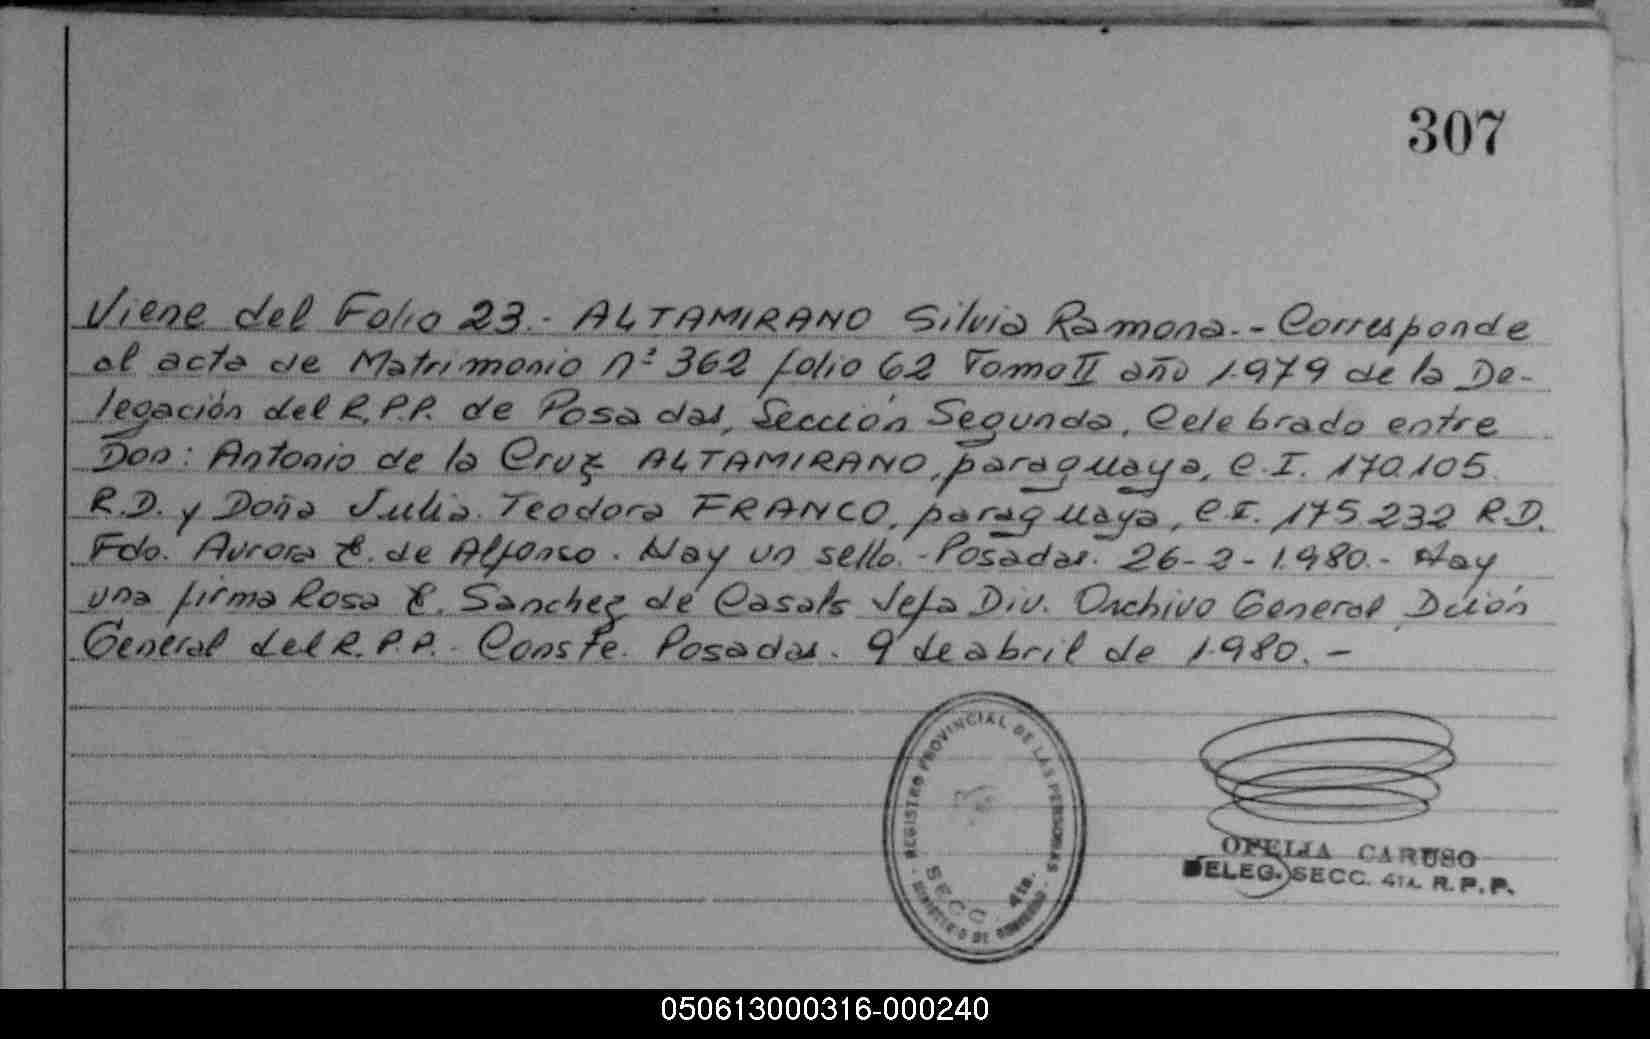 307
Viene del Folio 23.- ALTAMIRANO Silvia Ramona.- Corresponde
al acta de Matrimonio nº 362 folio 62 Tomo II año 1.979 de la De-
legación del R.P.P. de Posadas, Sección Segunda, Celebrado entre
Don: Antonio de la Cruz ALTAMIRANO, paraguaya, C.I. 170.105
R.D. y Doña Julia Teodora FRANCO, paraguaya, C.I. 175.232 R.D.
Fdo. Aurora E. de Alfonso. Hay un sello.- Posadas. 26-2-1.980.- Hay
una firma Rosa E. Sanchez de Casals Jefa Div. Archivo General, Dción
General del R.P.P.- Conste. Posadas. 9 de abril de 1.980.-
REGISTRO PROVINCIAL DE LAS PERSONAS
SECC. 4ta.
MINISTERIO DE GOBIERNO
OFELIA CARUSO
DELEG. SECC. 4TA. R.P.P.
050613000316-000240